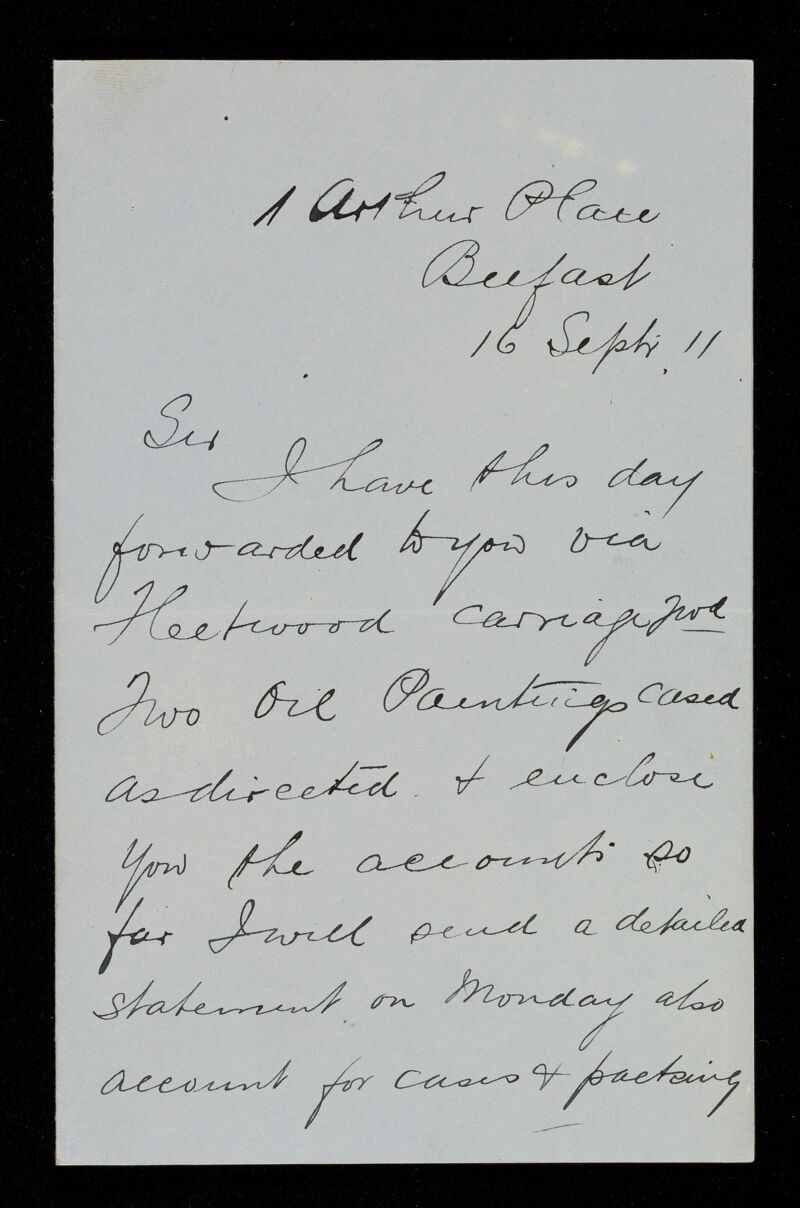 1 Arthur Place
Belfast
16 Septr. 11
Sir
I have this day
forwarded to you via
Fleetwood carriage fwd
Two Oil Paintings cased
as directed & enclose
you the accounts so
far I will send a detailed
statement on Monday also
account for cases & packing